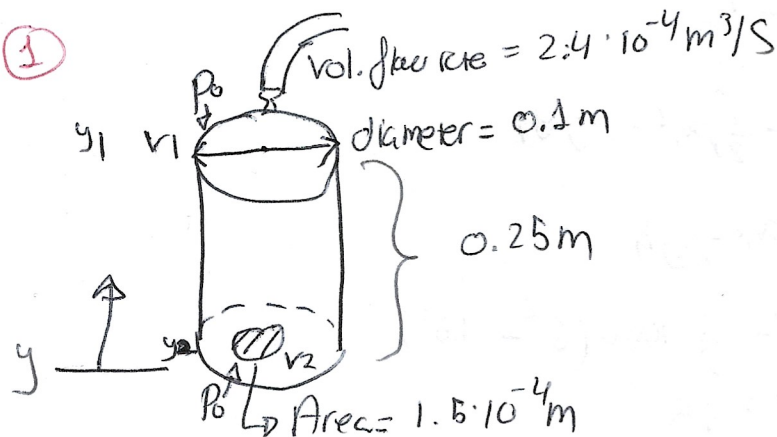 1
Vol. flow rate = 2.4 · 10^-4 m^3/S
P0
y1 v1 diameter = 0.1m
0.25m
y y2 v2
P0 Area = 1.5·10^-4 m